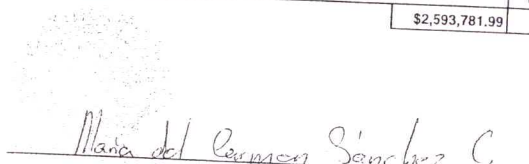 $2,593,781.99
María del Carmen Sánchez C.